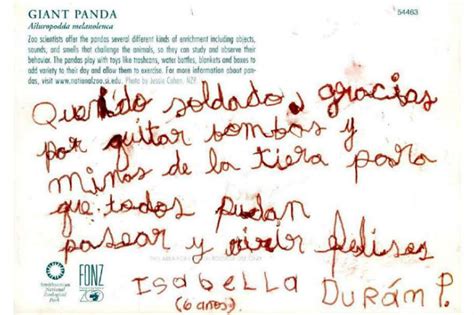 GIANT PANDA
54463
Ailuropoda melanoleuca
Zoo scientists offer the pandas several different kinds of enrichment including objects,
sounds, and smells that challenge the animals, so they can study and observe their
behavior. The pandas play with toys like trashcans, water bottles, blankets and boxes to
add variety to their day and allow them to exercise. For more information about pan-
das, visit www.nationalzoo.si.edu. Photo by Jessie Cohen, NZP.
Querido soldado, gracias
por quitar bombas y
minas de la tiera para
que todos puedan
pasear y vivir felises
Smithsonian
National
Zoological
Park
FONZ
Isabella Durám P.
(6 años)